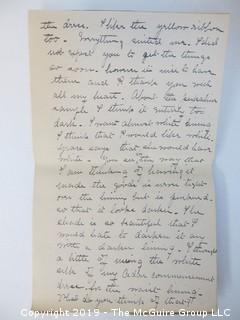 the dress. I like the yellow ribbon
too. Everything suited me. I did
not expect you to get the things
so soon. However its nice to have
them and I thank you with
all my heart. About the
sample I think it entirely too
dark. I want almost white lining.
I think that I would like white.
says that she would have
white. You see, the way that
I am thinking of having it
made the goods is never tight
over the lining but is
so that it looks darker. The
shade is so beautiful that I
would hate to darken it any
with a darker lining. I thought
a little of using the white
silk of my Adlu commencement
dress for the waist lining.
What do you think of that?
Copyright 2019 - The McGuire Group LLC